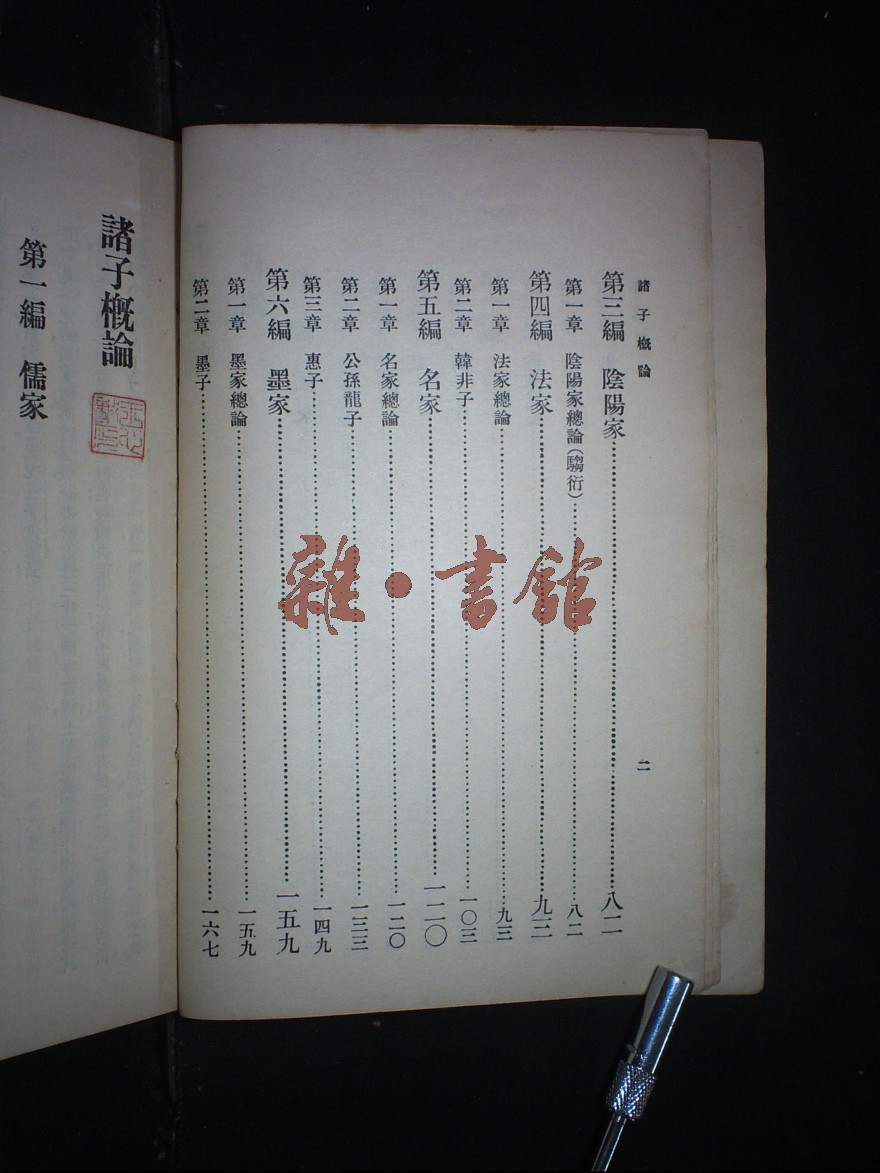 諸子概論
二
第三編 陰陽家 八二
第一章 陰陽家總論(騶衍) 八二
第四編 法家 九三
第一章 法家總論 九三
第二章 韓非子 一〇三
第五編 名家 一二〇
第一章 名家總論 一二〇
第二章 公孫龍子 一三三
第三章 惠子 一四九
第六編 墨家 一五九
第一章 墨家總論 一五九
第二章 墨子 一六七
諸子概論
第一編 儒家
雜·書館